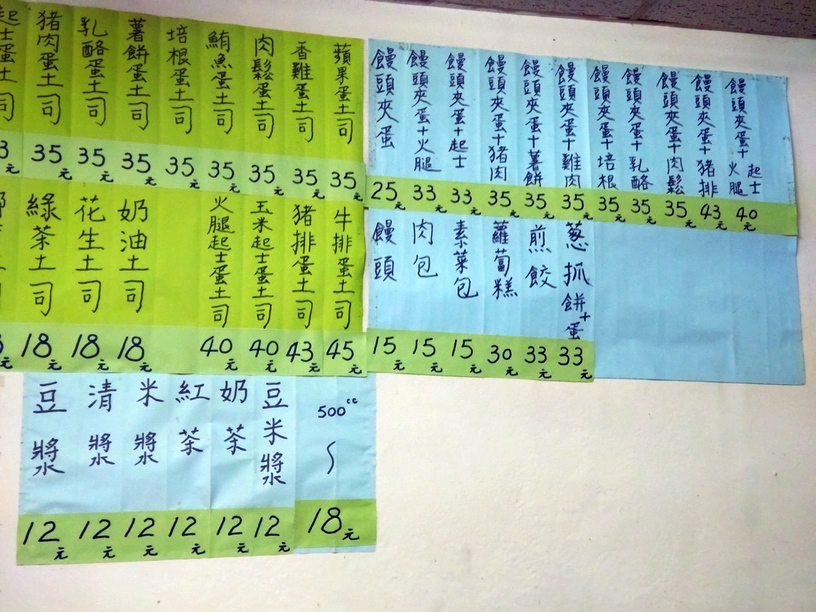 起士蛋土司
豬肉蛋土司 35元
乳酪蛋土司 35元
薯餅蛋土司 35元
培根蛋土司 35元
鮪魚蛋土司 35元
肉鬆蛋土司 35元
香雞蛋土司 35元
蘋果蛋土司 35元
綠茶土司 18元
花生土司 18元
奶油土司 18元
火腿起士蛋土司 40元
玉米起士蛋土司 40元
豬排蛋土司 43元
牛排蛋土司 45元
饅頭夾蛋 25元
饅頭夾蛋+火腿 33元
饅頭夾蛋+起士 33元
饅頭夾蛋+豬肉 35元
饅頭夾蛋+薯餅 35元
饅頭夾蛋+雞肉 35元
饅頭夾蛋+培根 35元
饅頭夾蛋+乳酪 35元
饅頭夾蛋+肉鬆 35元
饅頭夾蛋+豬排 43元
饅頭夾蛋+火腿起士 40元
饅頭 15元
肉包 15元
素菜包 15元
蘿蔔糕 30元
煎餃 33元
葱抓餅+蛋 33元
豆漿 12元
清漿 12元
米漿 12元
紅茶 12元
奶茶 12元
豆米漿 12元
500cc~ 18元